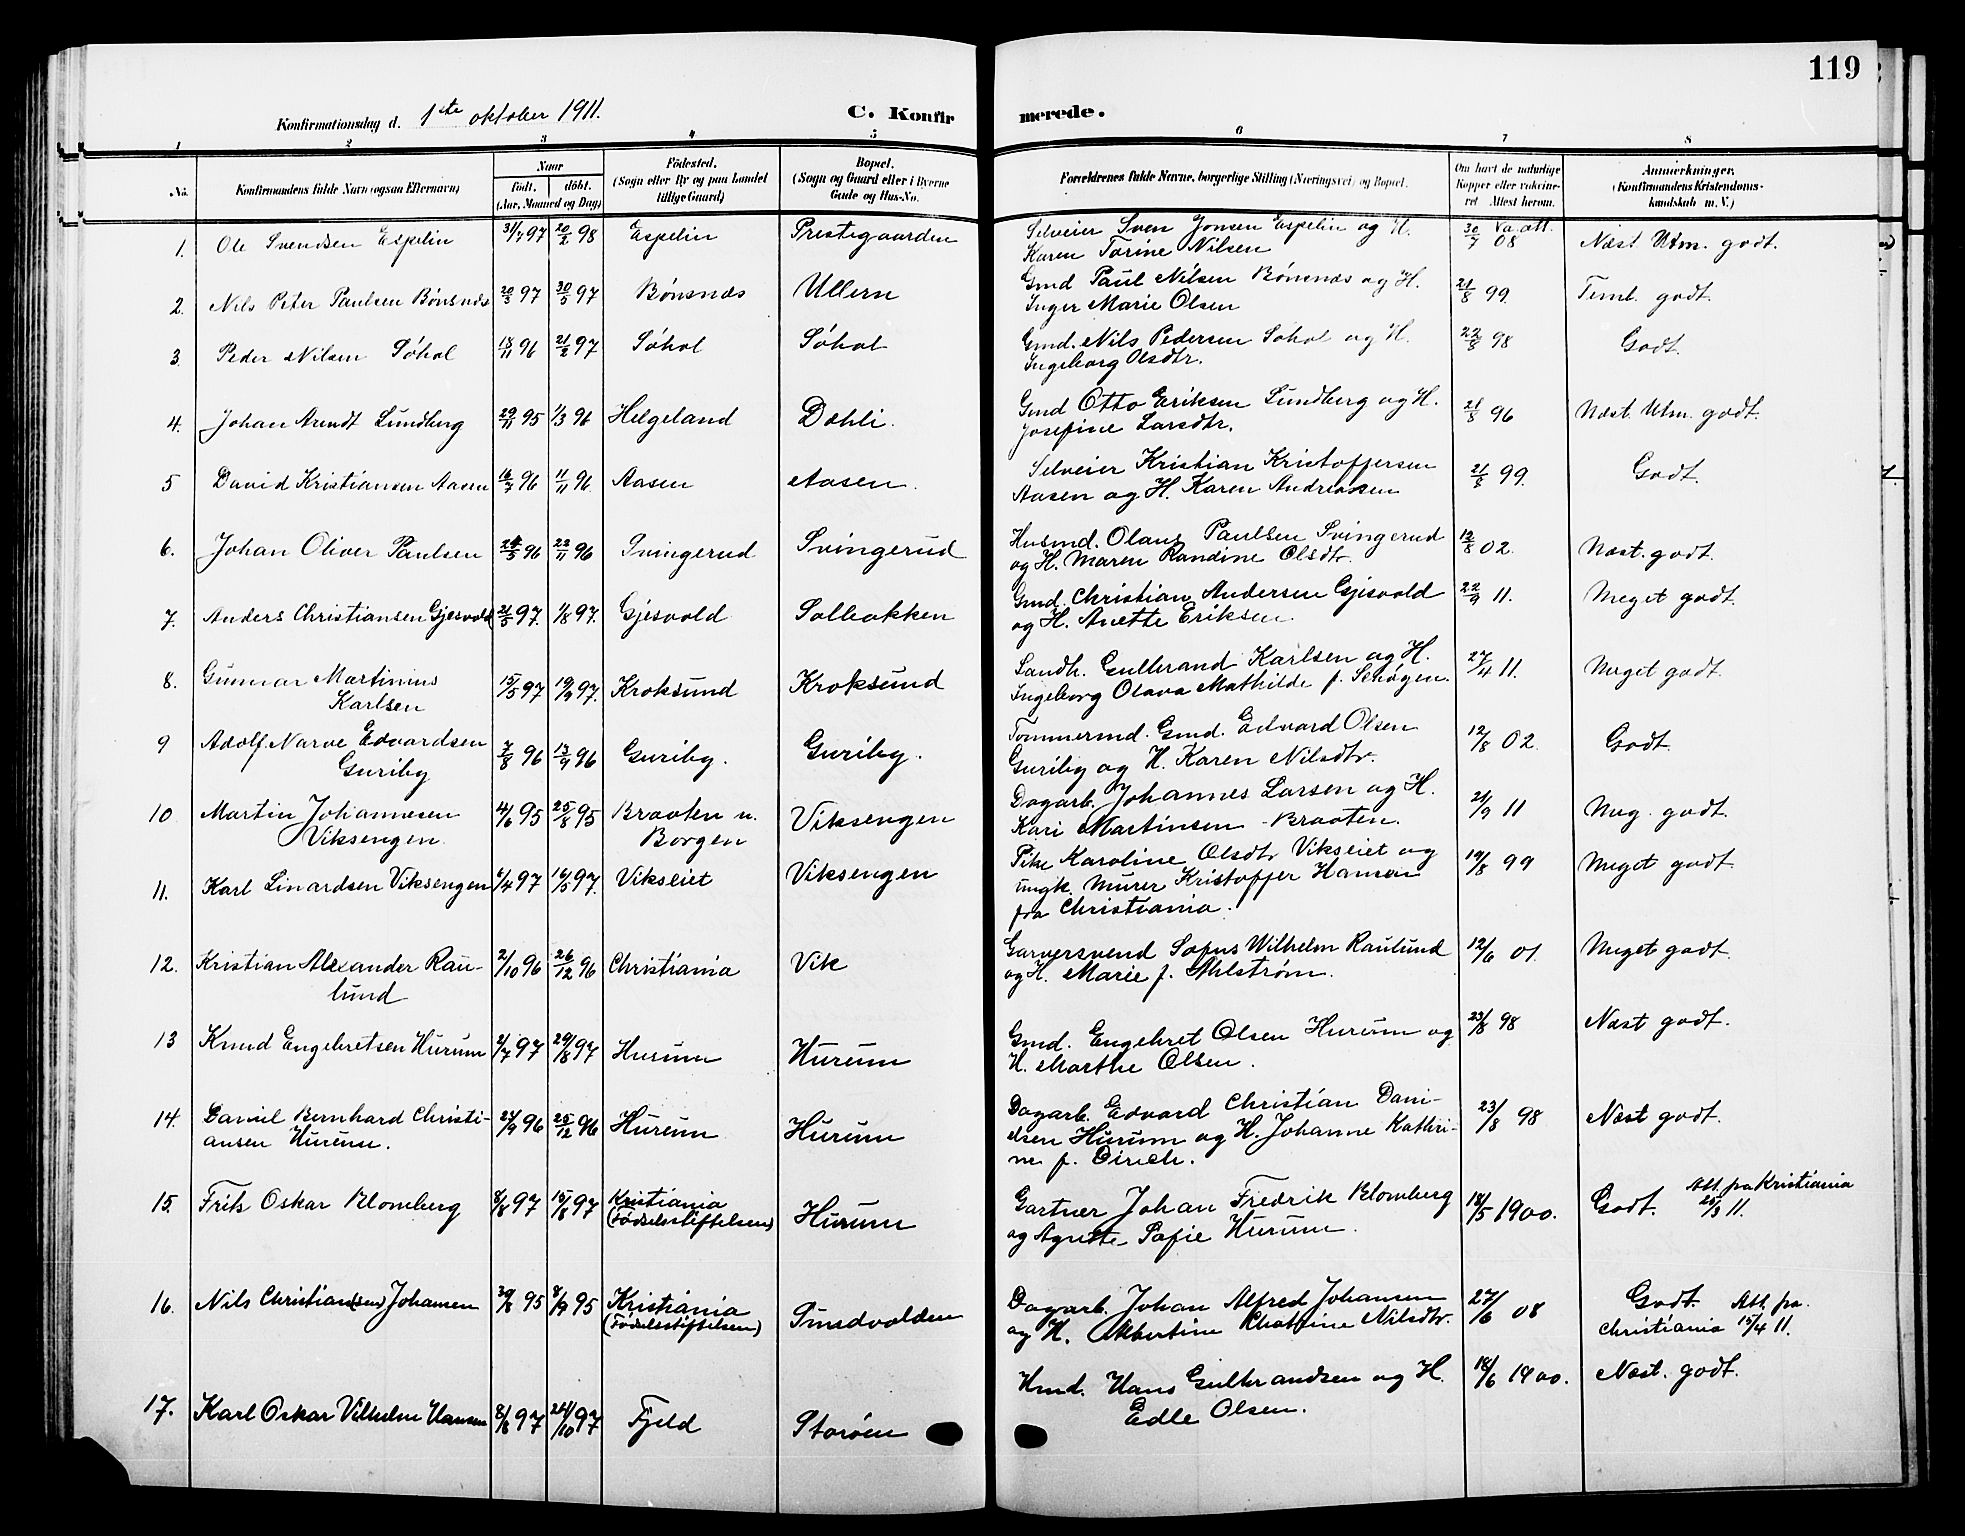 119
Konfirmationsdag d. 1ste oktober 1911. C. Konfirmerede.
1 2 3 4 5 6 7 8
No. Konfirmandens fulde Navn (ogsaa Efternavn) Naar født. døbt. (Aar, Maaned og Dag) Fødested. (Sogn eller By og paa Landet tillige Gaard) Bopæl. (Sogn og Gaard eller i Byerne Gade og Hus-No. Forældrenes fulde Navne, borgerlige Stilling (Næringsvei) og Bopæl. Om havt de naturlige Kopper eller vakcineret Attest herom. Anmerkninger. (Konfirmandens Kristendomskundskab m. V.)
1. Ole Svendsen Espelin 31/7 97 20/2 98 Espelin Prestegaarden Selveier Sven Jonsen Espelin og H. 30/7 08 Va. att. Næst Utm. godt.
Karen Torine Nilsen
2. Nils Peter Paulsen Bönsnæs 20/3 97 30/5 97 Bönsnæs Ullern Gmd Paul Nilsen Bönsnæs og H. 21/8 99. Teml. godt.
Inger Marie Olsen
3. Peder Nilsen Söhol 18/11 96 21/2 97 Söhol Söhol Gmd. Nils Pedersen Söhol og H. 22/8 98 Godt.
Ingeborg Olsdtr.
4. Johan Arendt Lundberg 29/11 95 1/3 96 Helgeland Dæhli. Gmd Otto Eriksen Lundberg og H. 21/8 96 Næst Utm. godt.
Josefine Larsdtr.
5 David Kristiansen Aasen 16/7 96 11/11 96. Aasen Aasen. Selveier Kristian Kristoffersen 21/8 99. Godt.
Aasen og H. Karen Andreasen
6. Johan Oliver Paulsen 24/5 96 22/11 96 Svingerud Svingerud Husmd. Olaus Paulsen Svingerud 12/8 02. Næst. godt.
og H. Maren Randine Olsdtr.
7. Anders Christiansen Gjesvold 21/5 97. 1/8 97. Gjesvold Solbakken Gmd. Christian Andersen Gjesvold 22/9 11. Meget godt.
og H. Anette Eriksen.
8. Gunnar Martinius 15/5 97 19/9 97. Kroksund Kroksund Landh. Gulbrand Karlsen og H. 27/4 11. Meget godt.
Karlsen Ingeborg Olava Mathilde f.
9 Adolf Narve Edvardsen 7/8 96 13/9 96 Guriby. Guriby. Tømmermd. Gmd. Edvard Olsen 12/8 02. Godt.
Guriby Guriby og H. Karen Nilsdtr.
10 Martin Johannesen 4/6 95 25/8 95 Braaten u. Viksengen Dagarb. Johannes Larsen og H. 21/9 11 Meg. godt.
Viksengen Borgen Kari Martinsen Braaten.
11. Karl Linardsen Viksengen 6/4 97 16/5 97. Vikseiet Viksengen Pike Karoline Olsdtr Vikseiet og 19/8 99 Meget godt.
ungk. Murer Kristoffer Hansen
fra Christiania.
12. Kristian Alexander Rau- 2/10 96 26/12 96 Christiania Vik Garversvend Sofus Wilhelm Raulund 12/6 01. Meget godt.
lund og H. Marie f. Ahlstrøm.
13 Knud Engebretsen Hurum 2/7 97 29/8 97 Hurum Hurum Gmd. Engebret Olsen Hurum og 23/8 98 Næst godt.
H. Marthe Olsen.
14. Daniel Bernhard Christi- 27/9 96 25/12 96 Hurum Hurum Dagarb. Edvard Christian Dani- 23/8 98 Næst godt.
ansen Hurum. elsen Hurum og H. Johanne Kathri-
ne f.
15. Frits Oskar Blomberg 8/8 97 15/8 97 Kristiania (Födselsstiftelsen) Hurum Gartner Johan Fredrik Blomberg 18/5 1900. Godt. Att. fra Kristiania
og Agnete Sofie Hurum. 25/3 11.
16. Nils Christian(sen) Johansen 30/8 95 8/9 95 Kristiania (Födselsstiftelsen) Smedvolden Dagarb. Johan Alfred Johansen 27/6 08 Godt. Att. fra.
og H. Albertine Nilsdtr. Christiania 15/4 11.
17. Karl Oskar Vilhelm Hansen 8/6 97 24/10 97 Fjeld Storöen Hmd. Hans Gulbrandsen og H. 18/6 1900. Næst. godt.
Edle Olsen.